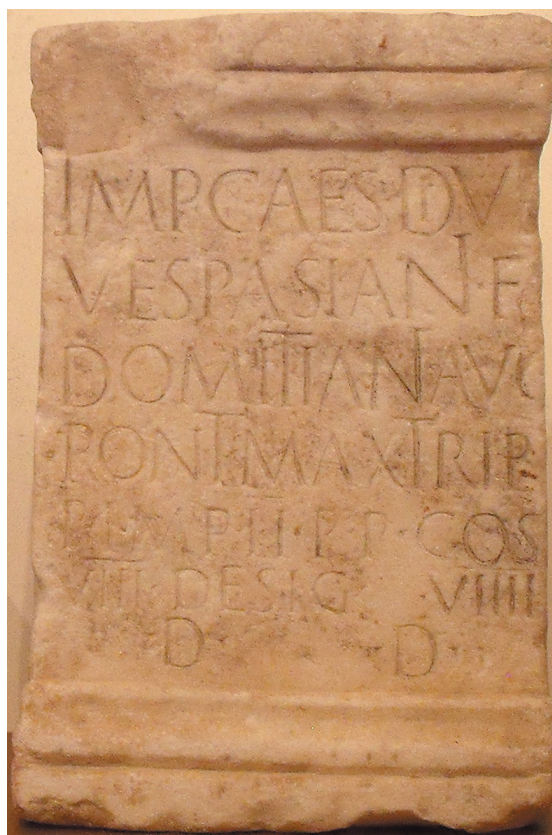 IMP·CAES·DIV
VESPASIAN·F
DOMITIAN AVG
PONT·MAX·TRIB
P·IMP·II·P·P·COS
VIII·DESIG VIIII
D D